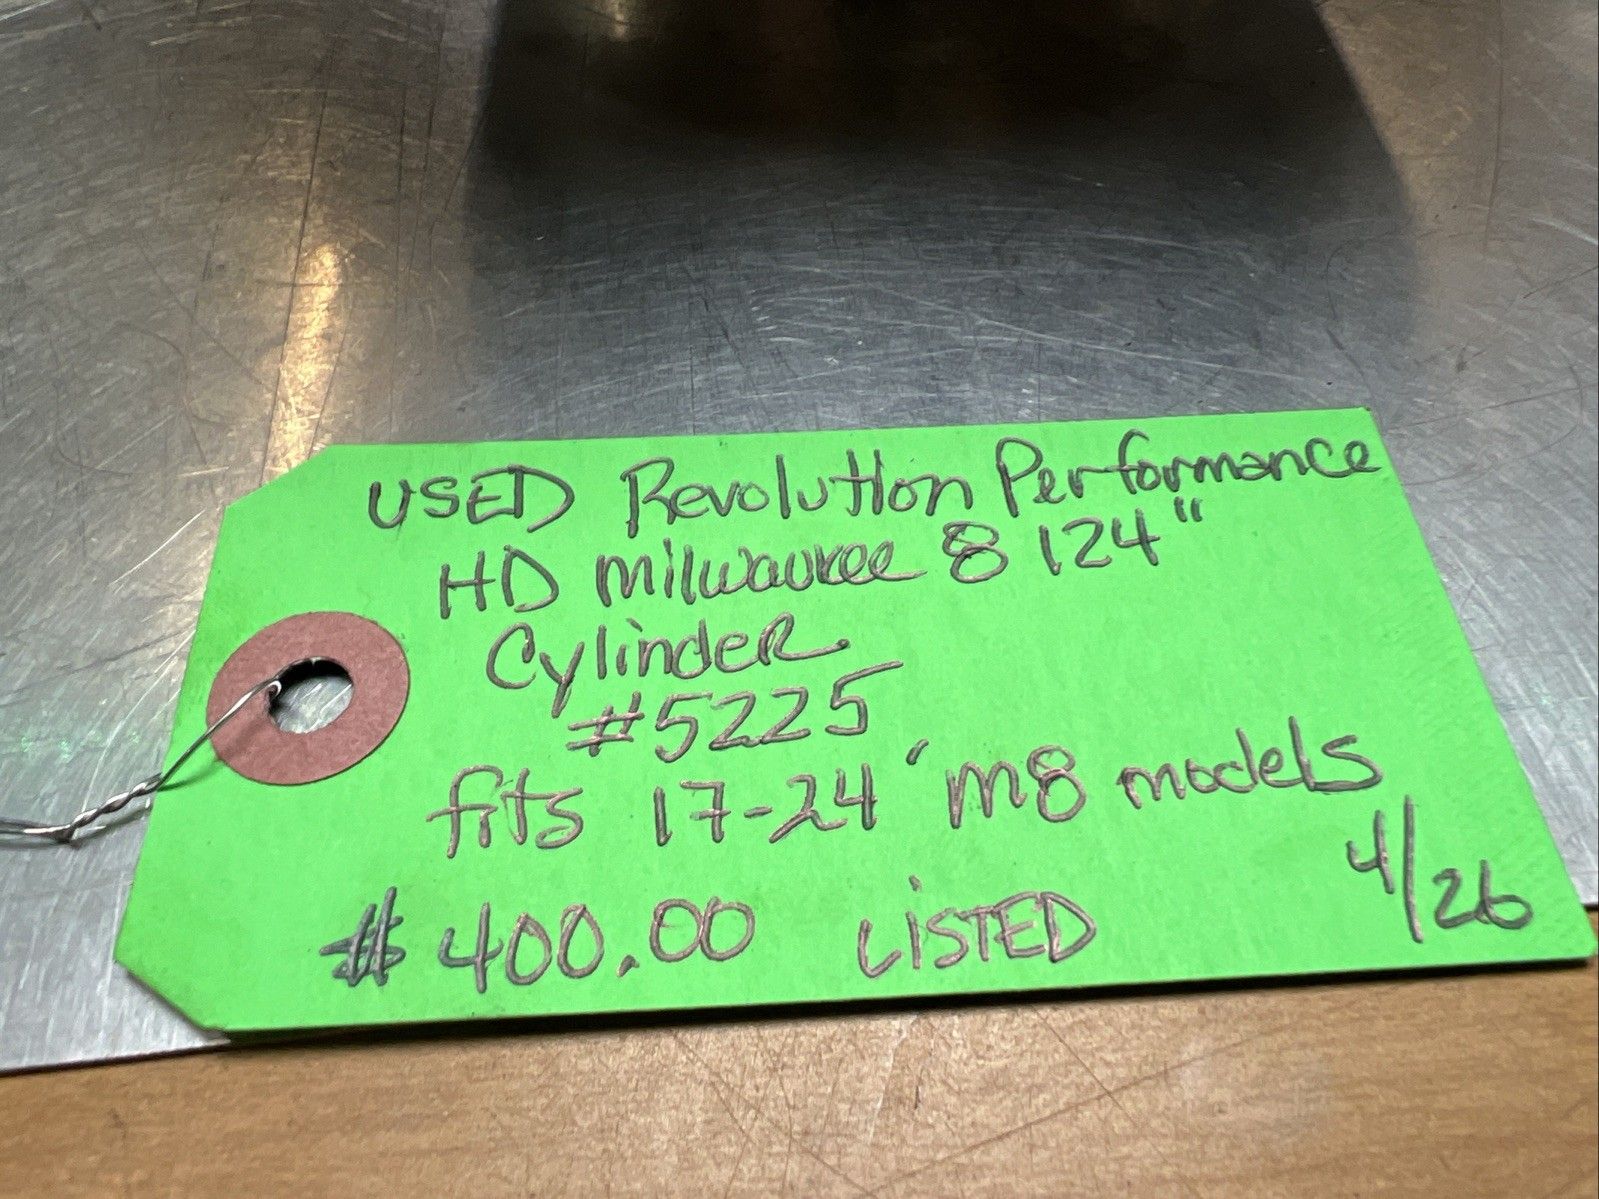 USED Revolution Performance
HD milwaukee 8 124"
Cylinder
#5225
fits 17-24' M8 models
4/26
$400.00 LiSTED